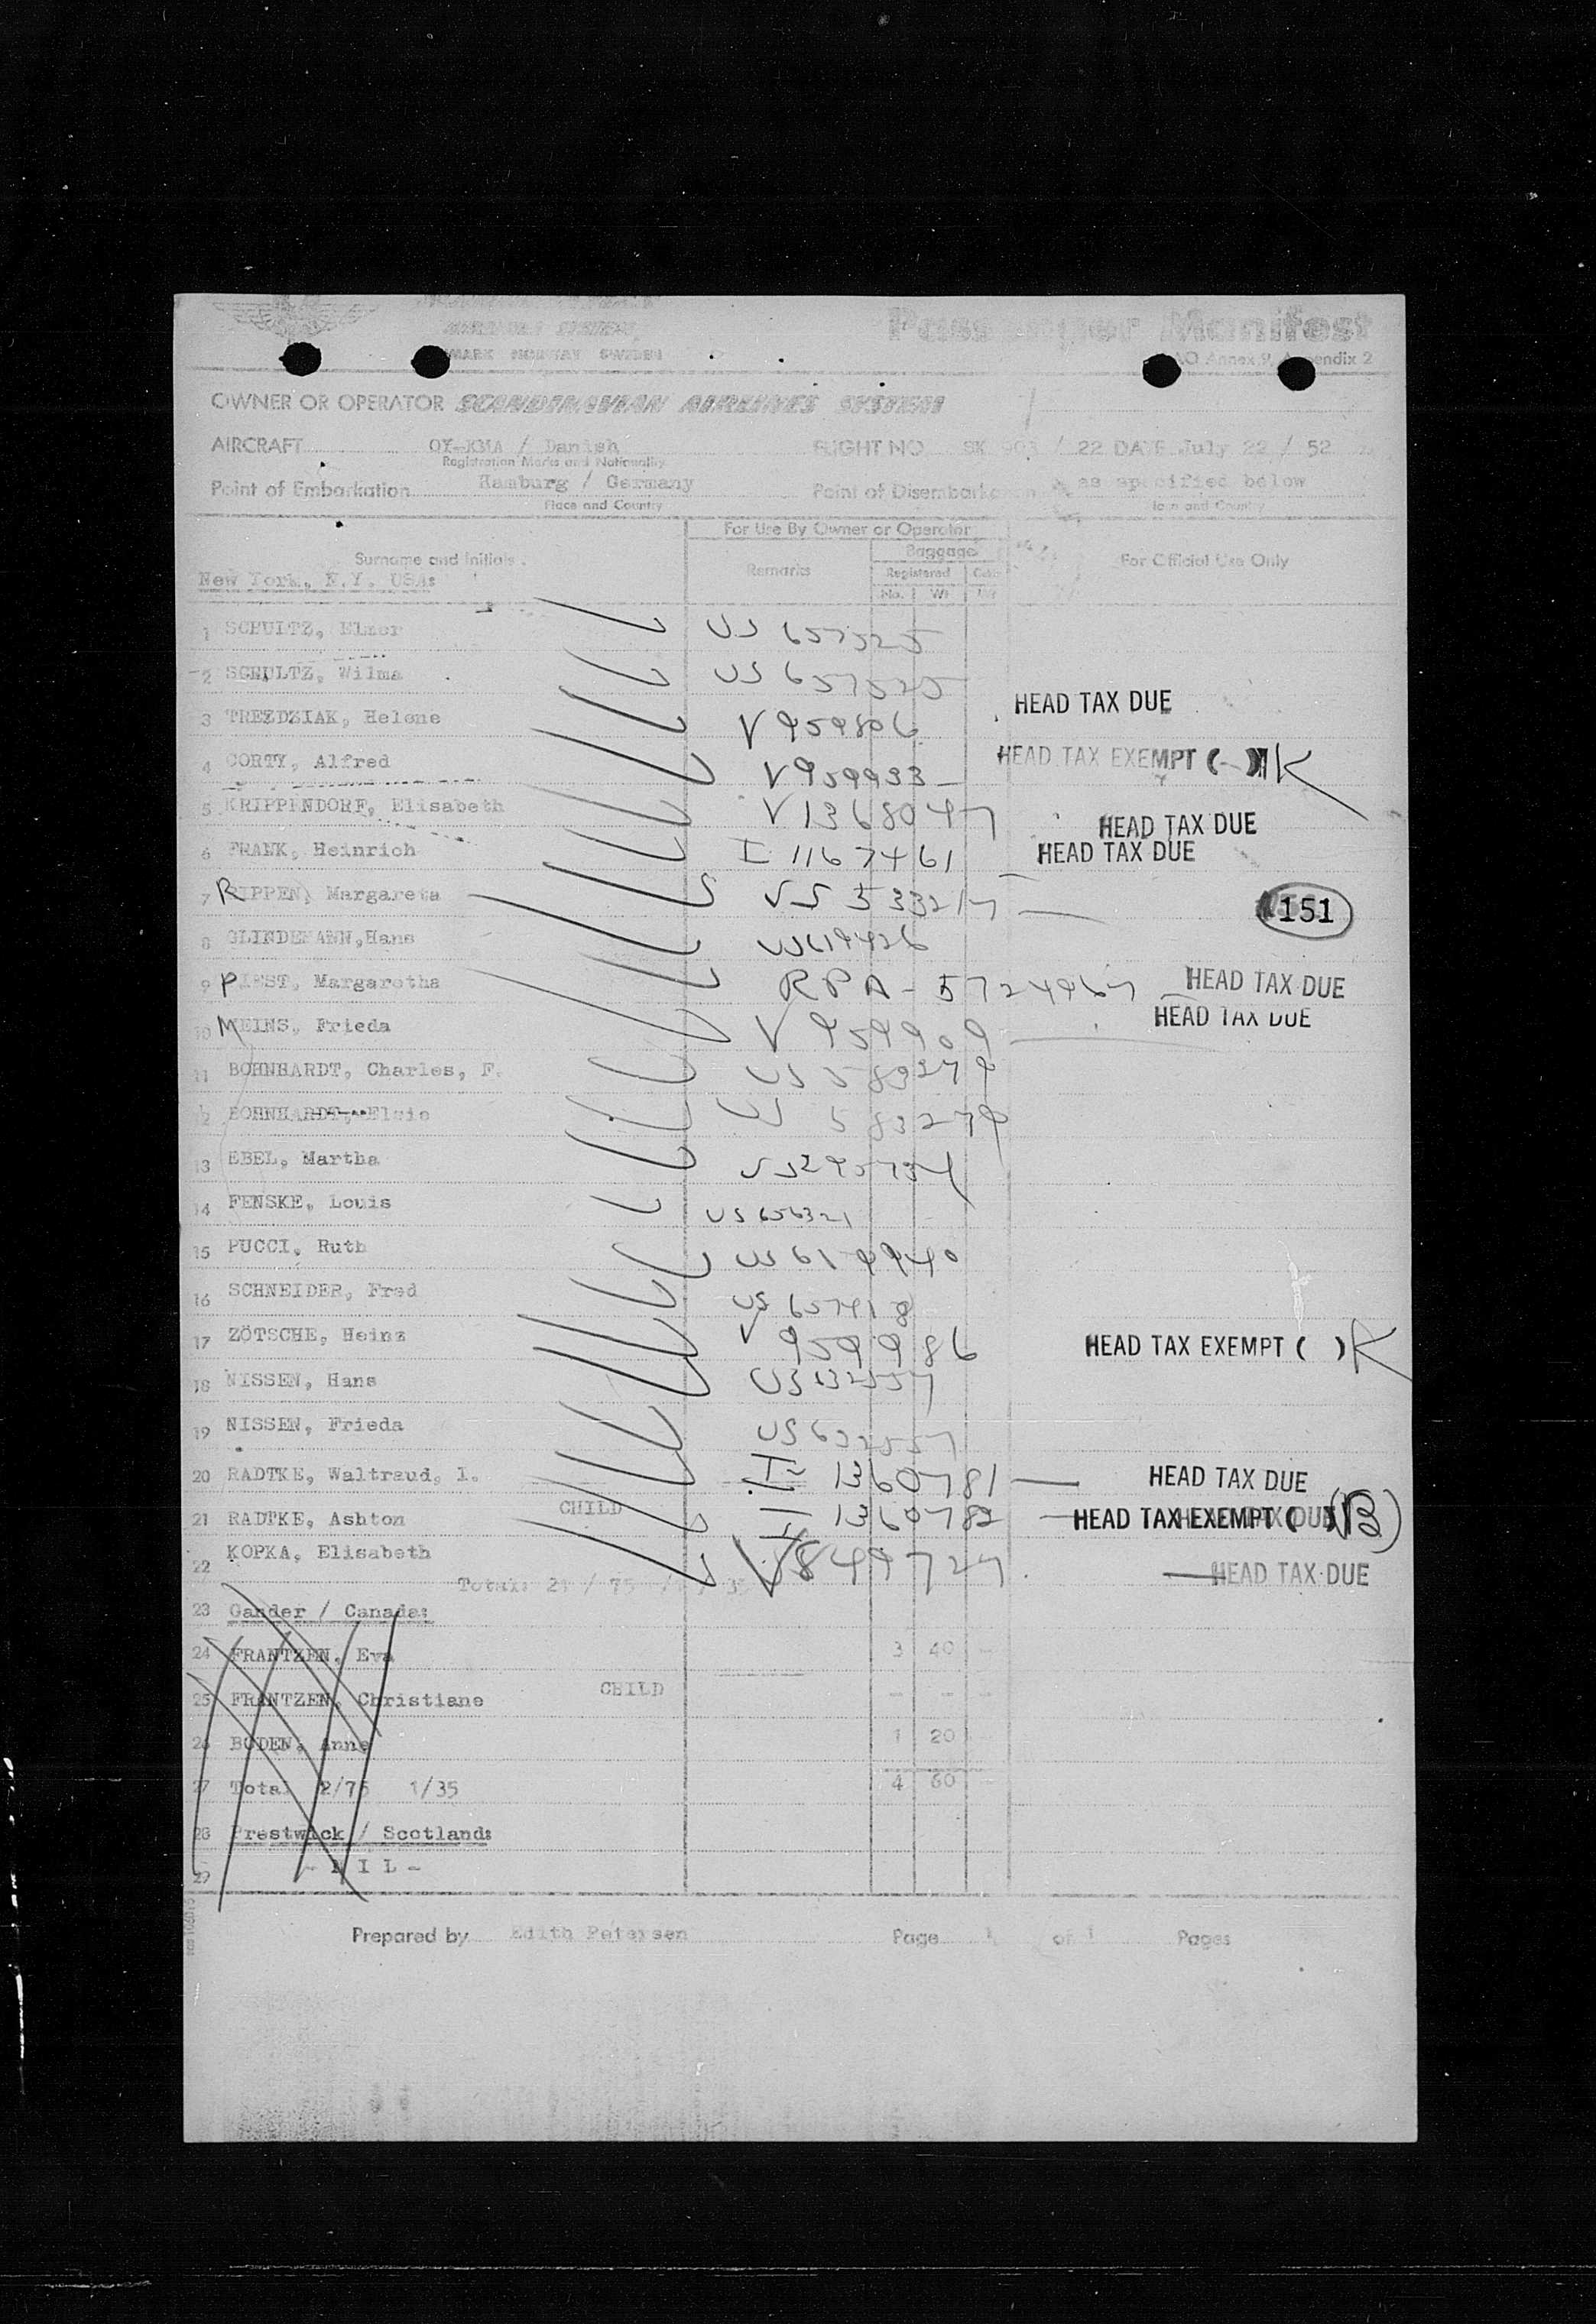 Passenger Manifest
DENMARK NORWAY SWEDEN
ICAO Annex 9, Appendix 2
OWNER OR OPERATOR SCANDINAVIAN AIRLINES SYSTEM
AIRCRAFT OY-KMA / Danish FLIGHT NO SK 903 / 22 DATE July 22 / 52
Registration Marks and Nationality
Point of Embarkation Hamburg / Germany Point of Disembarkation as specified below
Place and Country
For Use By Owner or Operator
Surname and Initials Remarks Baggage For Official Use Only
Registered
No. Wt
New York, N.Y. USA:
1 SCHULTZ, Elmer US 657525
2 SCHULTZ, Wilma US 657525
3 TREZDZIAK, Helene V 959806 HEAD TAX DUE
4 CORTY, Alfred V 959933 HEAD TAX EXEMPT ( ) K
5 KRIPPENDORF, Elisabeth V 1368047 HEAD TAX DUE
6 FRANK, Heinrich I 1167461 HEAD TAX DUE
7 RIPPEN, Margareta US 533217 151
8 GLINDEMANN, Hans US 619426
9 PIEST, Margaretha RPA - 5724967 HEAD TAX DUE
10 MEINS, Frieda V 959909 HEAD TAX DUE
11 BOHNHARDT, Charles, F. US 583279
12 BOHNHARDT, Elsie US 583279
13 EBEL, Martha US 295734
14 FENSKE, Louis US 656321
15 PUCCI, Ruth US 619940
16 SCHNEIDER, Fred US 657418
17 ZÖTSCHE, Heinz V 959986 HEAD TAX EXEMPT ( ) K
18 NISSEN, Hans US 632557
19 NISSEN, Frieda US 632557
20 RADTKE, Waltraud, I. I- 1360781 HEAD TAX DUE
21 RADTKE, Ashton CHILD I 1360782 HEAD TAX EXEMPT ( ) (B)
22 KOPKA, Elisabeth V 849727 HEAD TAX DUE
Total: 21 / 75 / 35
23 Gander / Canada:
24 FRANTZEN, Eva 3 40 -
25 FRANTZEN, Christiane CHILD - - -
26 BODEN, Anne 1 20
27 Total 2/75 1/35 4 60 -
28 Prestwick / Scotland:
29 - N I L -
Prepared by Edith Petersen Page 1 of 1 Pages